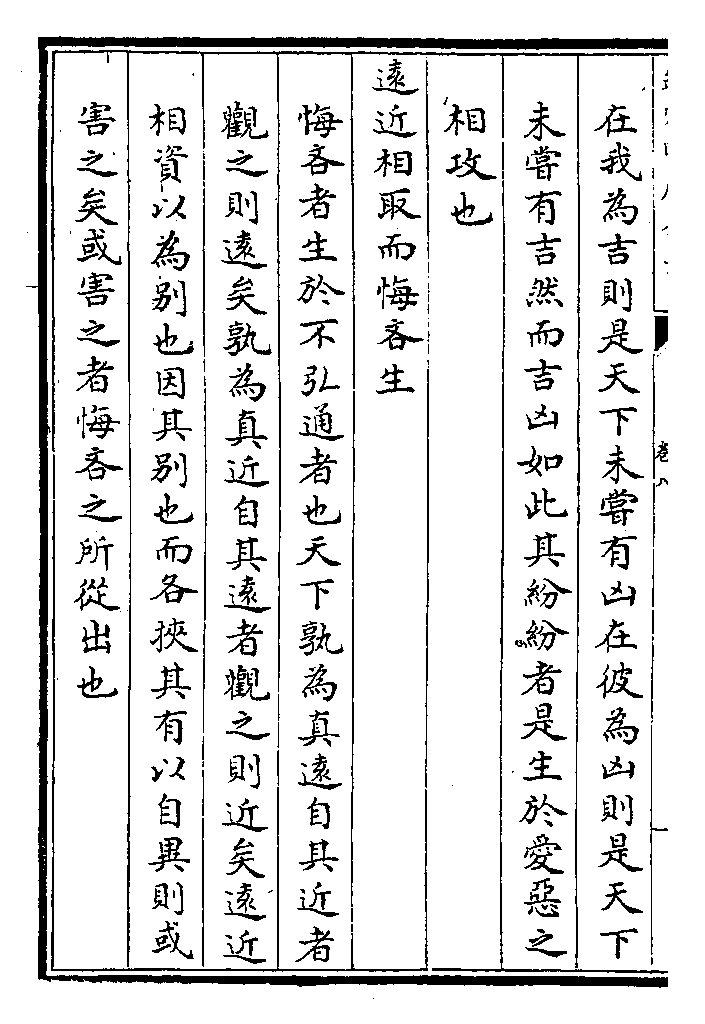 在我為吉則是天下未嘗有凶在彼為凶則是天下
未嘗有吉然而吉凶如此其紛紛者是生於愛惡之
相攻也
遠近相取而悔吝生
悔吝者生於不弘通者也天下孰為真遠自其近者
觀之則遠矣孰為真近自其遠者觀之則近矣遠近
相資以為别也因其别也而各挾其有以自異則或
害之矣或害之者悔吝之所從出也